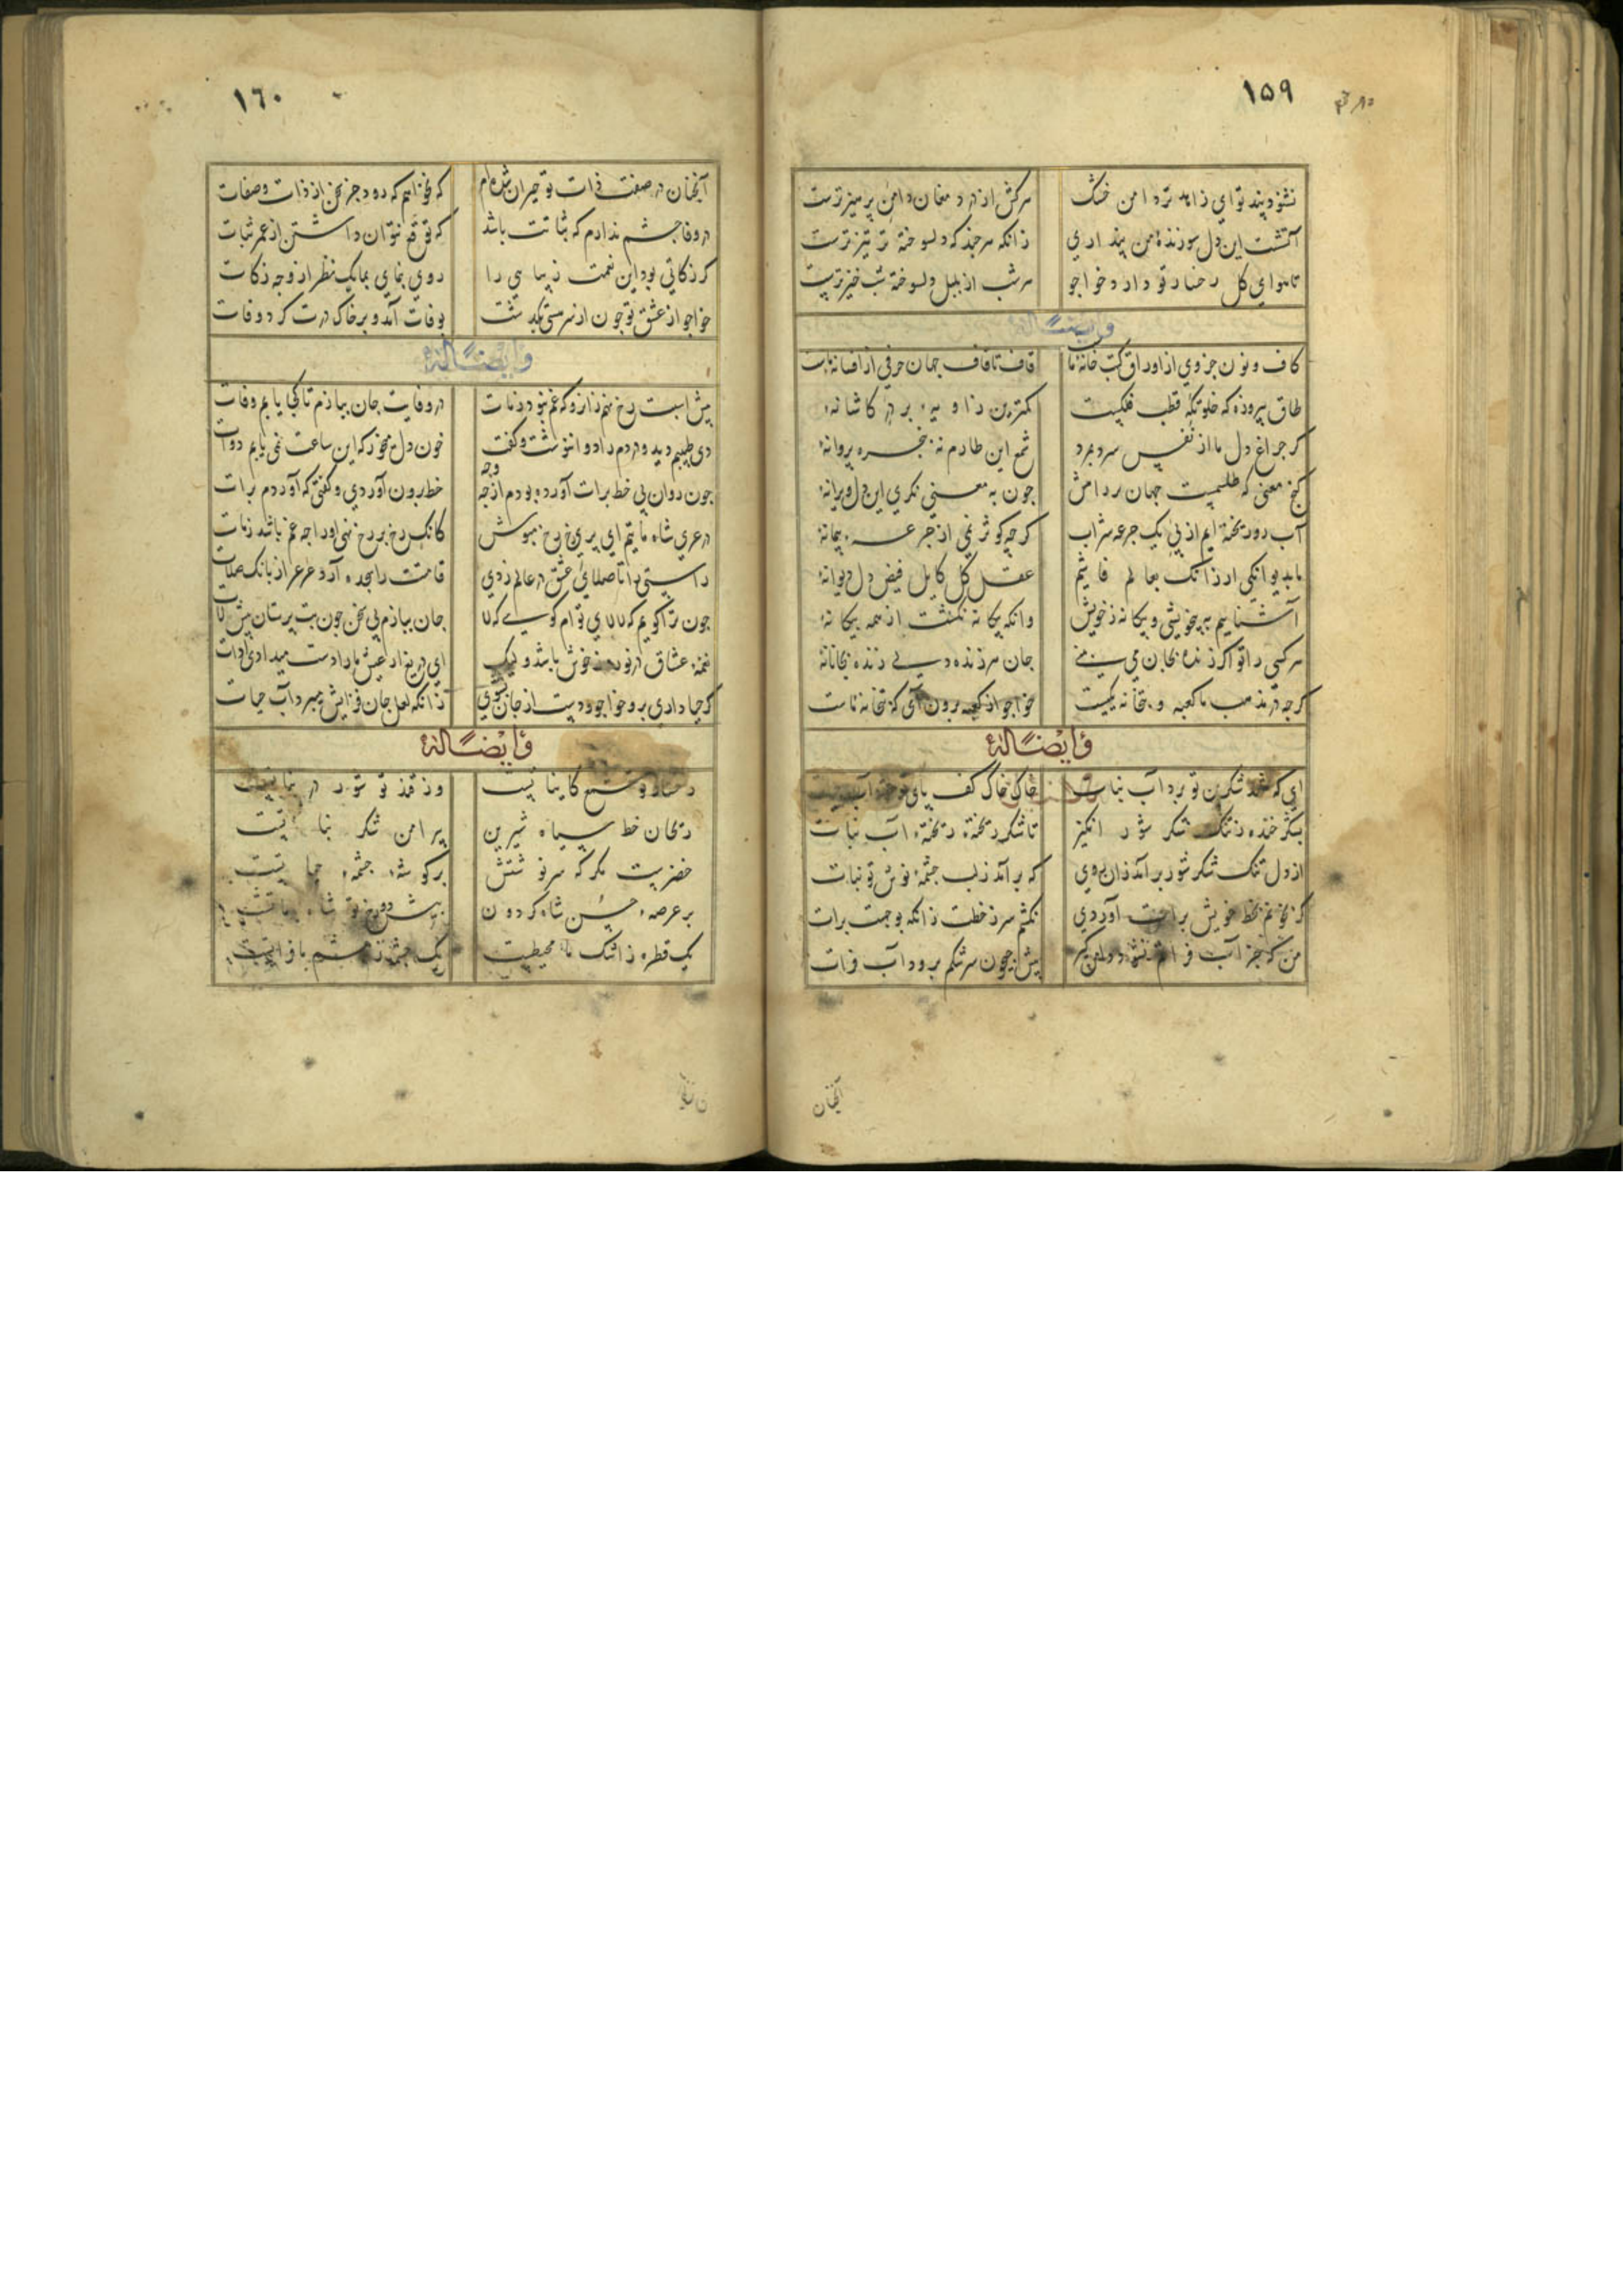 ١٥٩
نشنود پند تو ای زاهد تر دامن خشک
هرکش از درد مغان دامن پرهیز ترست
آتشست این دل سوزنده من پنداری
زانکه هر چند که دلسوخته تر تیزترست
تا هوای گل رخسار تو دارد خواجو
هر شب از بلبل دلسوخته شب خیزترست
وایضاً له
کاف و نون جزوی از اوراق کتب خانه ما
قاف تا قاف جهان حرفی از افسانه ماست
طاق پیروزه که خلوتگه قطب فلکیست
کمترین زاویه بر در کاشانه
کر جراغ دل ما از نفس سرد بمرد
شمع این طارم نه بنجره پروانه
کنج معنی که طلسمیست جهان بر دامش
جون به معنی نکری این دل ویرانه
آب رو ریخته ایم از پی یک جرعه شراب
کرجه کوثر نمی از جرعه پیمانه
ما بدیوانکی ار زانک بعالم فاشیم
عقل کل کایل فیض دل دیوانه
آشناییم به بیخویشی و بیکانه ز خویش
وانکه بیکانه نکشت از همه بیکانه
هر کسی را تو اکر زنده بجان می بینی
جان هر زنده دلی زنده بجانانه
کرجه در مذهب ما کعبه و بتخانه یکیست
خواجو از کعبه برون آی که بتخانه ماست
وایضاً له
ای که شهد شکرین تو برد آب نبات
خاک خاک کف پای
بشکر خنده ز تنک شکر شور انکیز
تا شکر ریخته ریخته آب نبات
از دل تنک شکر شور بر آمد زان روی
که بر آمد ز لب جشمه نوش تو نبات
کر بخونم بخط خویش برات آوردی
نکشم سر ز خطت زانکه بوجهست برات
من که جز آب فراتم نشود دامن کیر
بیش جیحون سرشکم برود آب فرات
آنجنان
١٦٠
آنجنان در صفت ذات تو حیران شده ام
که نخواهم که رود جز سخن از ذات و صفات
در وفا جشم ندارم که ثباتت باشد
که توقع نتوان داشتن از عمر ثبات
کر زکاتی بود این نعمت زیبایی را
روی بنمای بما یک نظر از وجه زکات
خواجو از عشق تو جون از سر هستی بکذشت
بوفات آمد و بر خاک درت کرد وفات
وایضاً له
بیش اسبت رخ نهم زانرو که غم نبود ز مات
در وفایت جان ببازم تا کجا یابم وفات
دی طبیبم دید و دردم را دوا ننوشت و کفت
خون دل میخور که این ساعت نمی یابم دوات
جون روان بی خط برات آورده بودم از جه وجه
خط برون آوردی و کفتی که آوردم برات
در عری شاه ماتیم ای بری رخ رخ مبوش
کانک رخ بر رخ نهی او را جه غم باشد ز مات
راستی را تا صلای عشق در عالم زدی
قامتت را سجده آرد عرعر از بانک صلات
جون ترا کویم که لالای توام کویی که لا
جان ببازم بی سخن جون بت برستان بیش لات
نغمه عشاق در نوروز خوش باشد ولیک
ای دریغ ار عیش ما را دست میدادی ادات
کر جیا داری برو خواجو و دست از جان بشوی
زانکه لعل جان فزایش میبرد آب حیات
وایضاً له
رخسار تو شمع کایناتست
وز قند تو شور در نباتست
ریحان خط سیاه شیرین
بیرامن شکر نباتست
خضریست مکر که سرنوشتش
بر کوشه جشمه حیاتست
بر عرصه حسن شاه کردون
بیش رخ تو شاه ماتست
یک قطره ز اشک ما محیطست
یک جشمه ز جشم ما فراتست